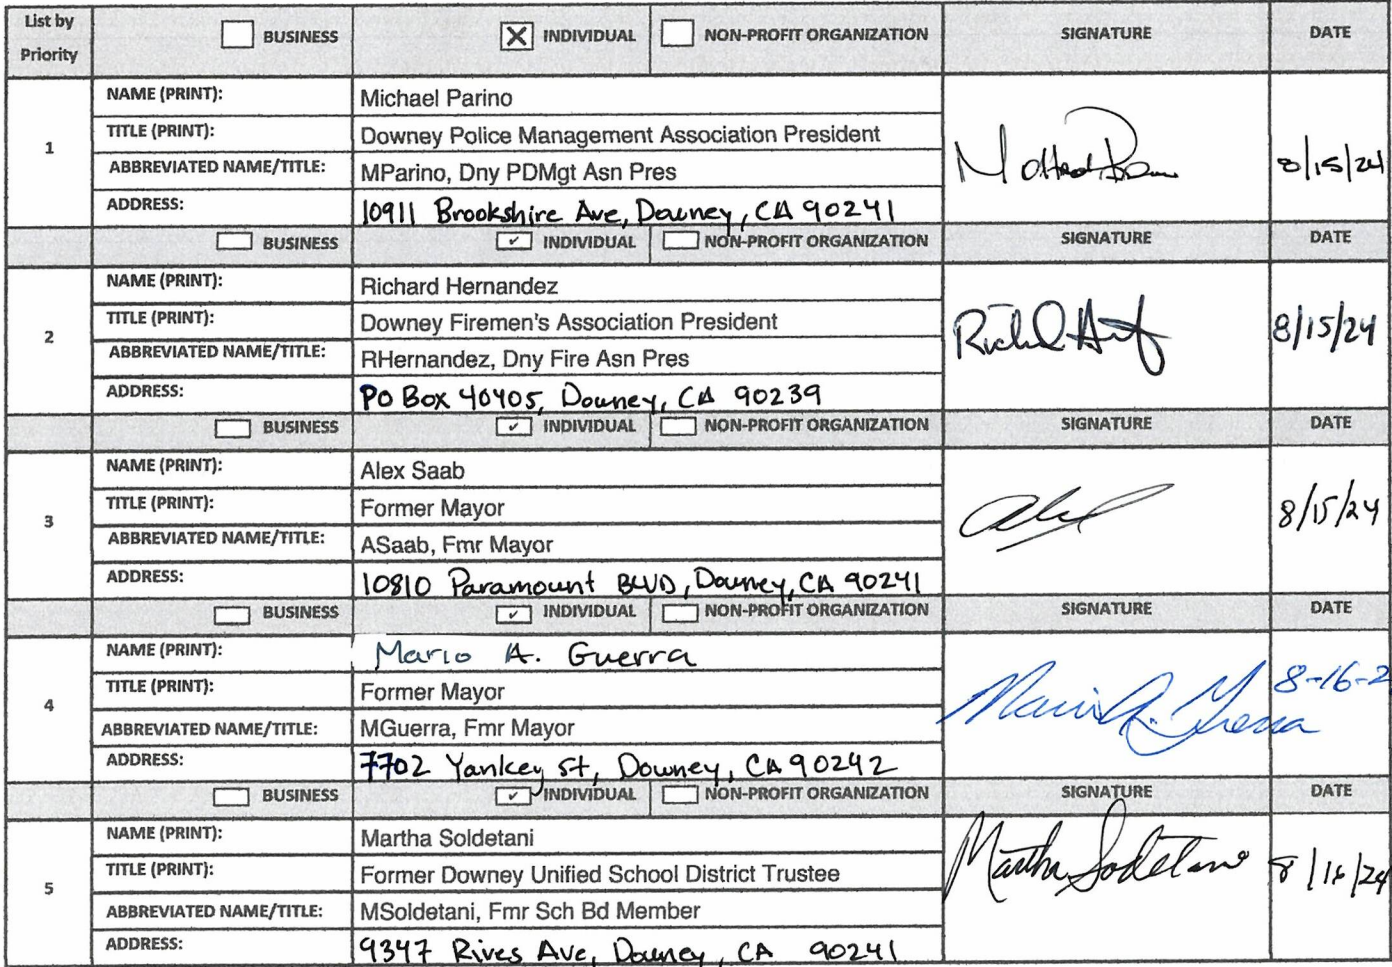 List by Priority BUSINESS INDIVIDUAL NON-PROFIT ORGANIZATION SIGNATURE DATE
1
NAME (PRINT): Michael Parino
TITLE (PRINT): Downey Police Management Association President
ABBREVIATED NAME/TITLE: MParino, Dny PDMgt Asn Pres 8/15/24
ADDRESS: 10911 Brookshire Ave, Downey, CA 90241
BUSINESS INDIVIDUAL NON-PROFIT ORGANIZATION SIGNATURE DATE
2
NAME (PRINT): Richard Hernandez
TITLE (PRINT): Downey Firemen's Association President 8/15/24
ABBREVIATED NAME/TITLE: RHernandez, Dny Fire Asn Pres
ADDRESS: PO Box 40405, Downey, CA 90239
BUSINESS INDIVIDUAL NON-PROFIT ORGANIZATION SIGNATURE DATE
3
NAME (PRINT): Alex Saab
TITLE (PRINT): Former Mayor 8/15/24
ABBREVIATED NAME/TITLE: ASaab, Fmr Mayor
ADDRESS: 10810 Paramount BLVD, Downey, CA 90241
BUSINESS INDIVIDUAL NON-PROFIT ORGANIZATION SIGNATURE DATE
4
NAME (PRINT): Mario A. Guerra
TITLE (PRINT): Former Mayor Mario A. Guerra 8-16-2
ABBREVIATED NAME/TITLE: MGuerra, Fmr Mayor
ADDRESS: 7702 Yankey St, Downey, CA 90242
BUSINESS INDIVIDUAL NON-PROFIT ORGANIZATION SIGNATURE DATE
5
NAME (PRINT): Martha Soldetani
TITLE (PRINT): Former Downey Unified School District Trustee Martha Sodetani 8/16/24
ABBREVIATED NAME/TITLE: MSoldetani, Fmr Sch Bd Member
ADDRESS: 9347 Rives Ave, Downey, CA 90241